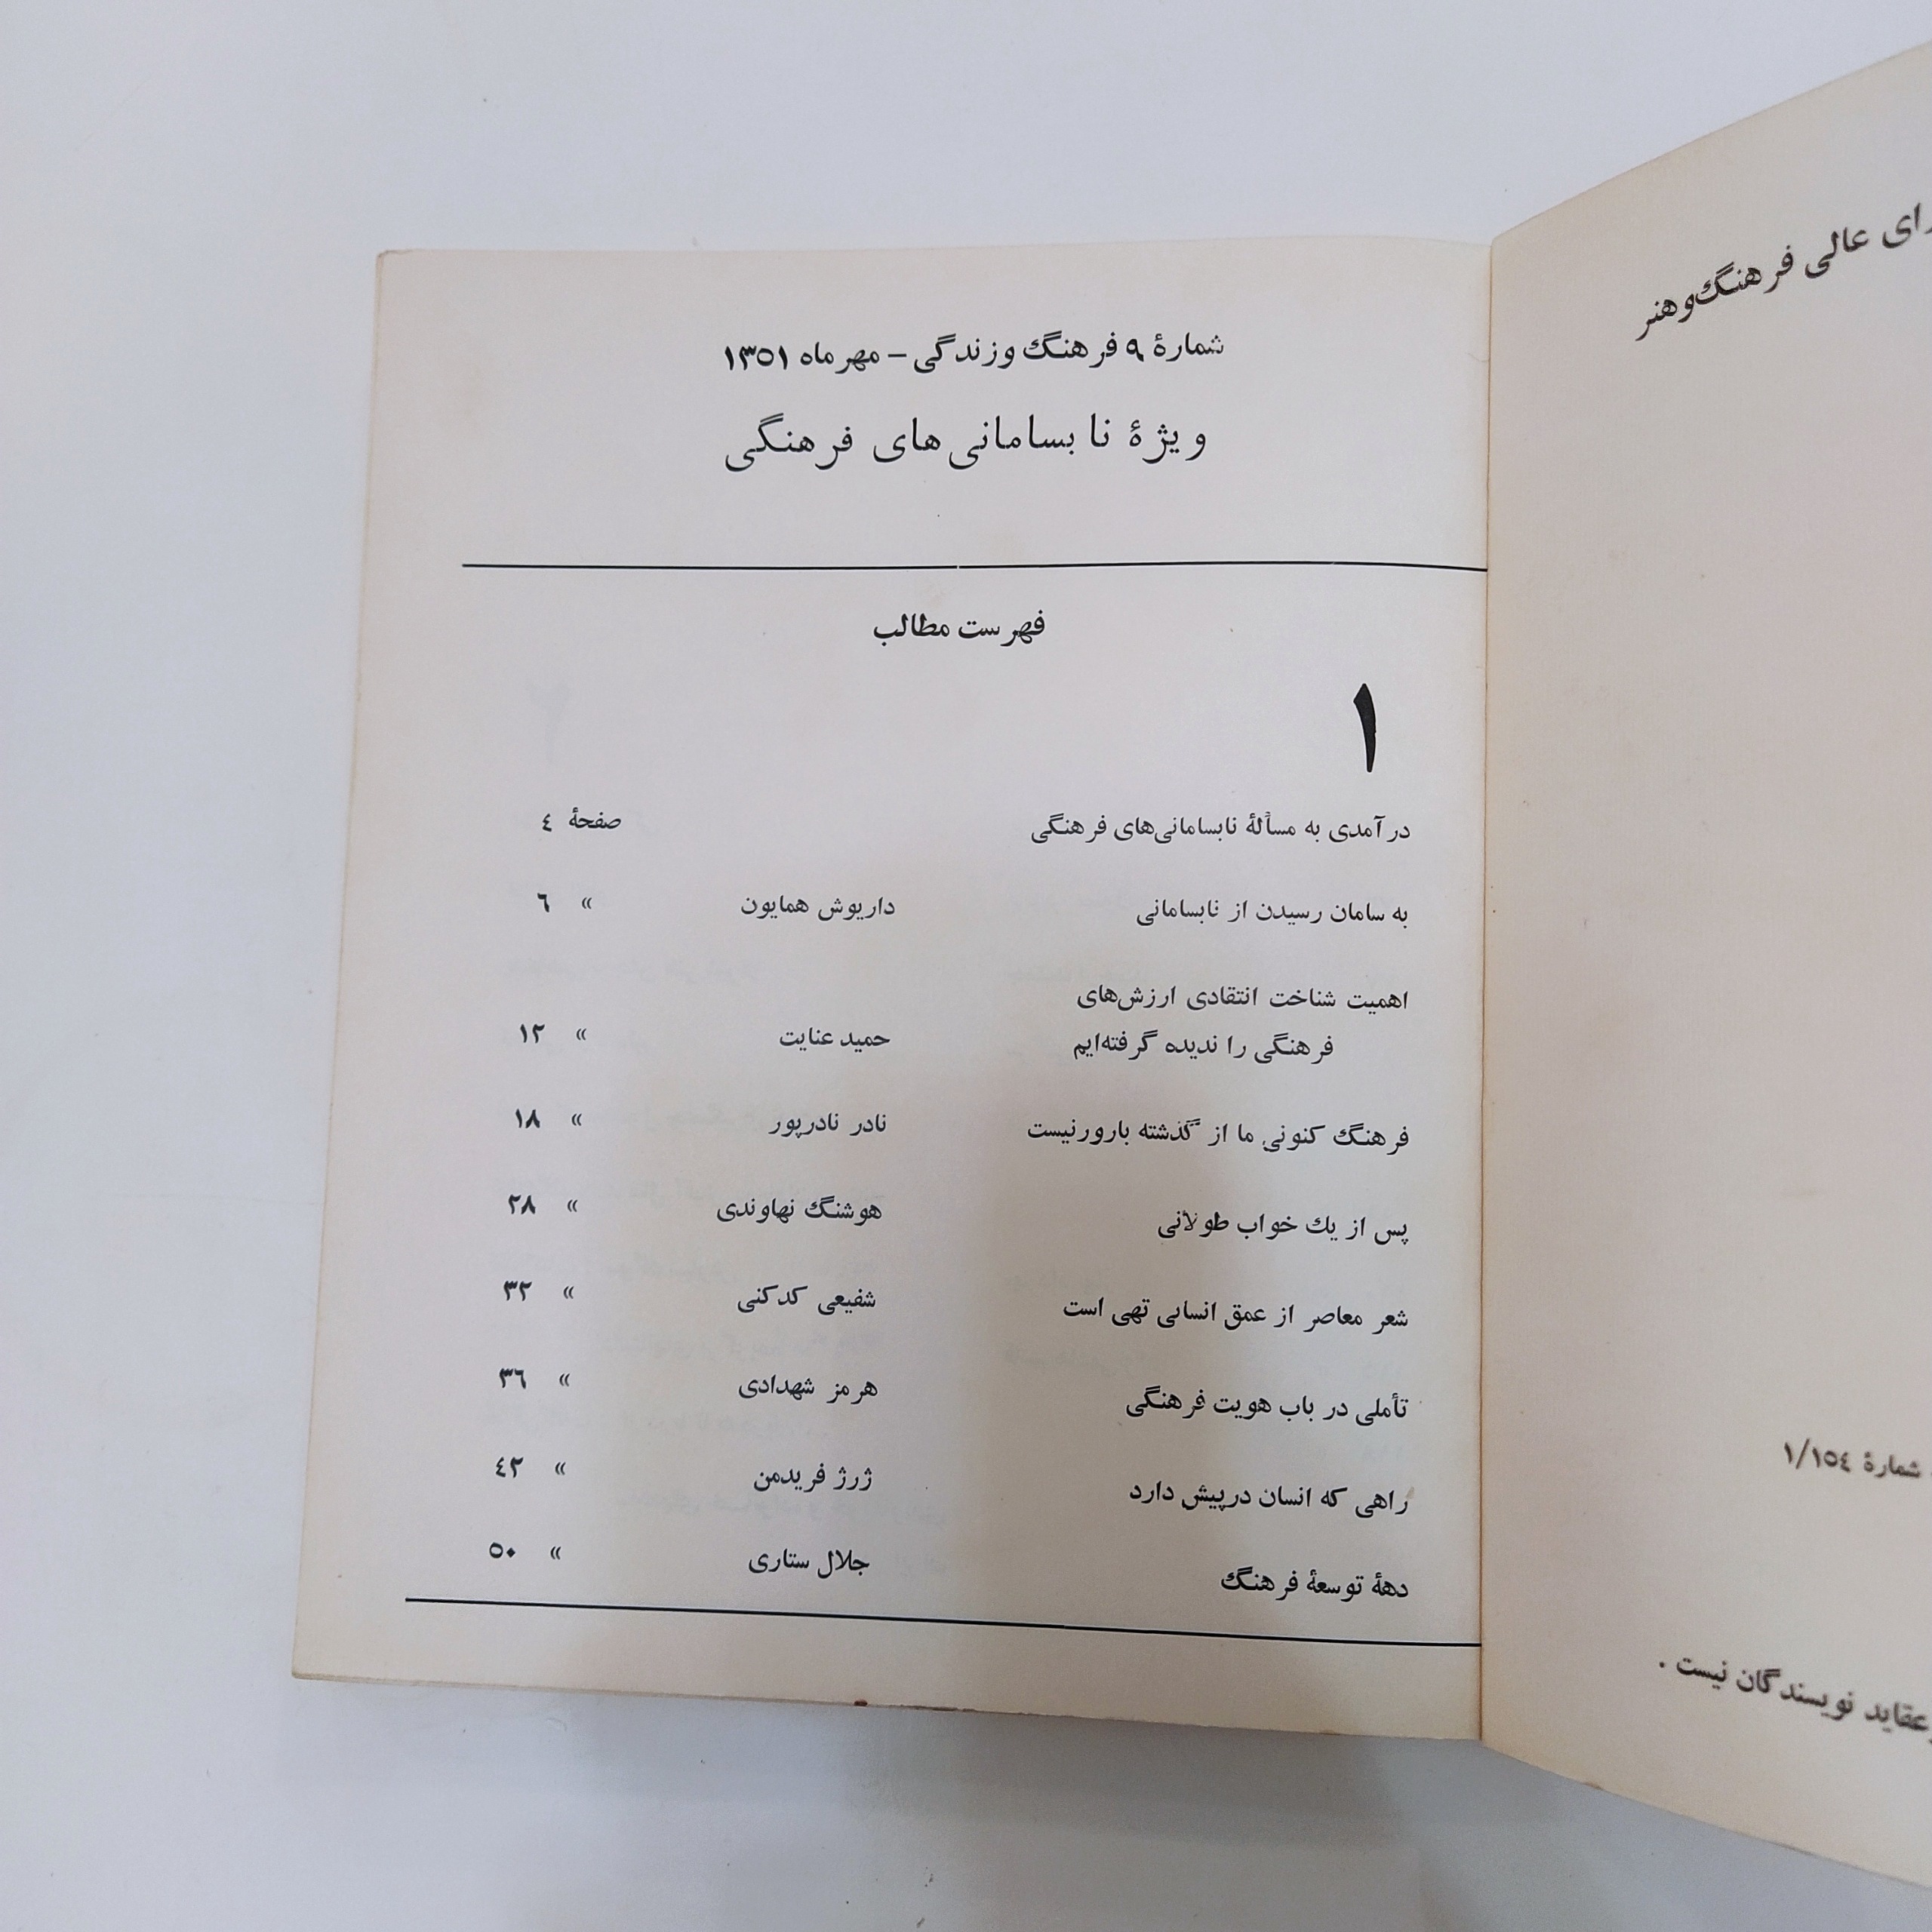 رای عالی فرهنگ‌وهنر
شمارهٔ ۱/۱۵۴
عقاید نویسندگان نیست .
شمارهٔ ۹ فرهنگ وزندگی – مهر ماه ۱۳۵۱
ویژهٔ نابسامانی‌های فرهنگی
فهرست مطالب
۱
درآمدی به مسألهٔ نابسامانی‌های فرهنگی صفحهٔ ۴
به سامان رسیدن از نابسامانی داریوش همایون » ۶
اهمیت شناخت انتقادی ارزش‌های
فرهنگی را ندیده گرفته‌ایم حمید عنایت » ۱۲
فرهنگ کنونی ما از گذشته بارورنیست نادر نادرپور » ۱۸
پس از یك خواب طولانی هوشنگ نهاوندی » ۲۸
شعر معاصر از عمق انسانی تهی است شفیعی کدکنی » ۳۲
تأملی در باب هویت فرهنگی هرمز شهدادی » ۳۶
راهی که انسان درپیش دارد ژرژ فریدمن » ۴۲
دههٔ توسعهٔ فرهنگ جلال ستاری » ۵۰